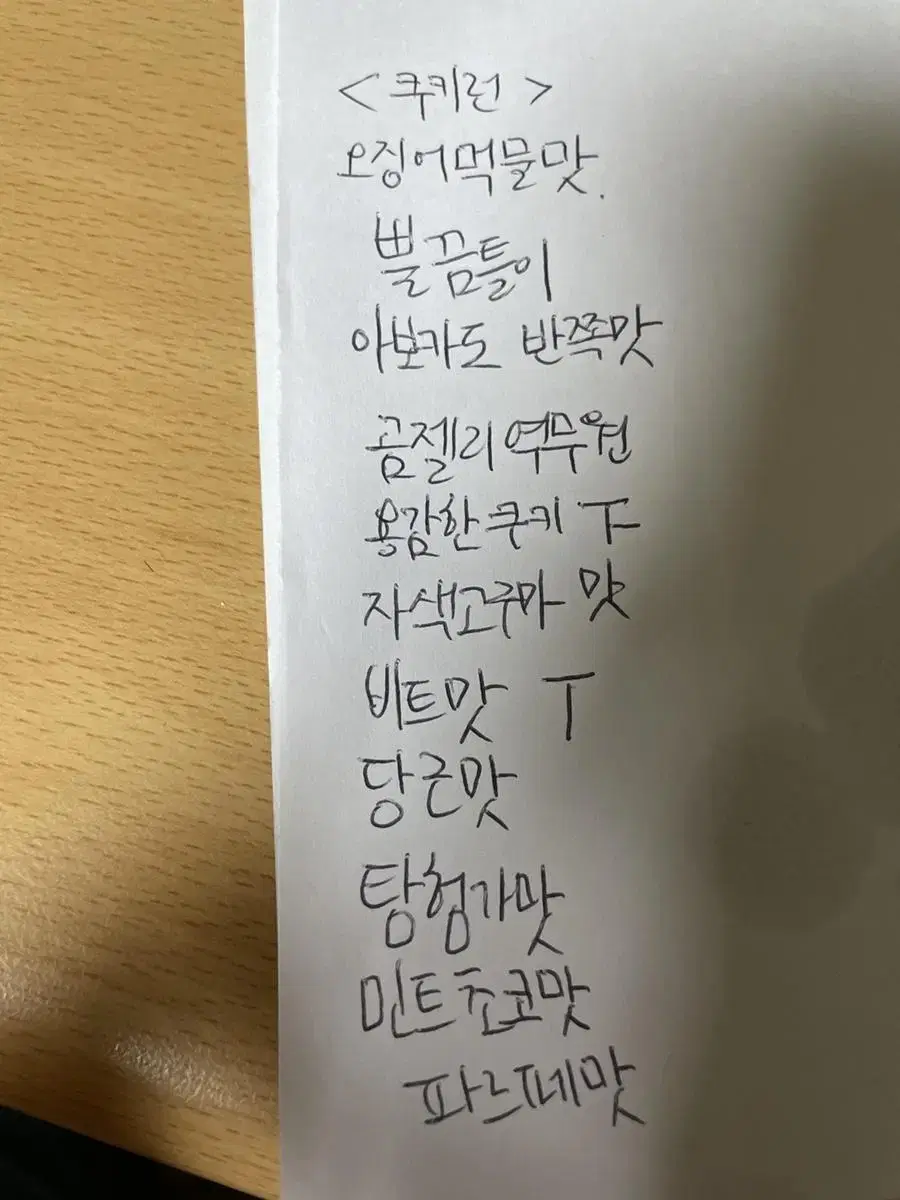 < 쿠키런 >
오징어먹물맛.
뿔꿈틀이
아보카도 반쪽맛
곰젤리역무원
용감한쿠키 下
자색고구마 맛
비트맛 T
당근맛
탐험가맛
민트초코맛
파르페맛